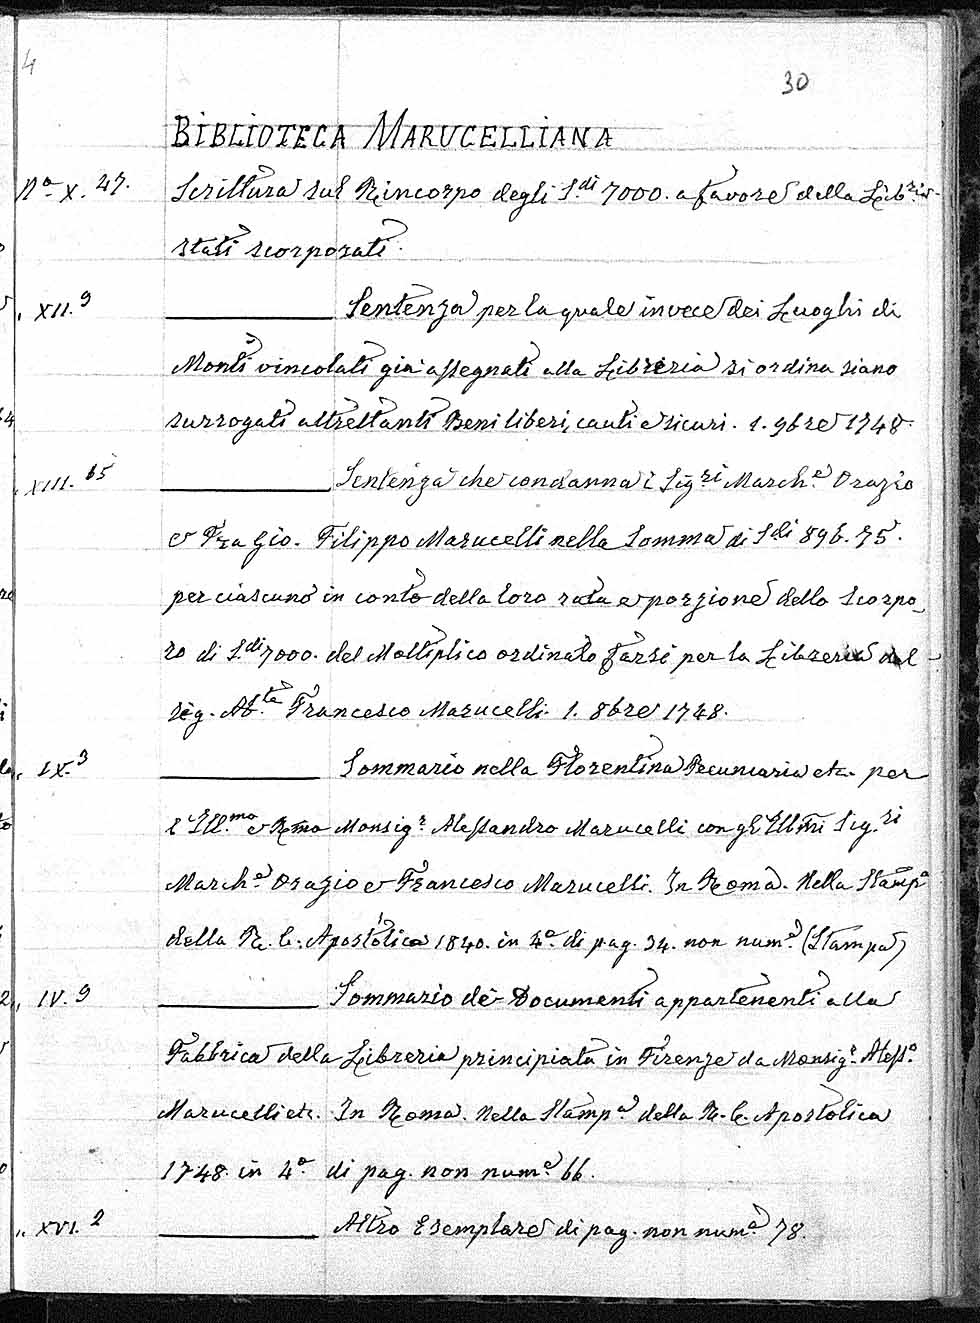 4
30
BIBLIOTECA MARUCELLIANA
Nº X. 27. Scrittura sul Rincorpo degli S.di 7000. a favore della Lib.ria
stati scorporati.
„ XII. 9 ——— Sentenza per la quale invece dei Luoghi di
Monti vincolati già assegnati alla Libreria si ordina siano
surrogati altrettanti Beni liberi, cauti e sicuri. 1. 9bre 1748.
„ XIII. 65 ——— Sentenza che condanna i Sig.ri March.e Orazio
e Fra Gio. Filippo Marucelli nella Somma di S.di 896. 75.
per ciascuno in conto della loro rata e porzione dello Scorpo-
ro di S.di 7000. del Moltiplico ordinato farsi per la Libreria dal
sig. Ab.te Francesco Marucelli. 1. 8bre 1748.
„ IX. 3 ——— Sommario nella Florentina Pecuniaria etc. per
l'Ill.mo e Rmo Monsig.r Alessandro Marucelli con gl'Illmi Sig.ri
March.e Orazio e Francesco Marucelli. In Roma. Nella Stamp.a
della R. C. Apostolica 1840. in 4º di pag. 34. non num.e (Stampa)
„ IV. 9 ——— Sommario de' Documenti appartenenti alla
Fabbrica della Libreria principiata in Firenze da Monsig.r Aless.o
Marucelli etc. In Roma. Nella Stamp.a della R. C. Apostolica
1748. in 4º di pag. non num.e 66.
„ XVI. 2 ——— Altro Esemplare di pag. non num.e 78.